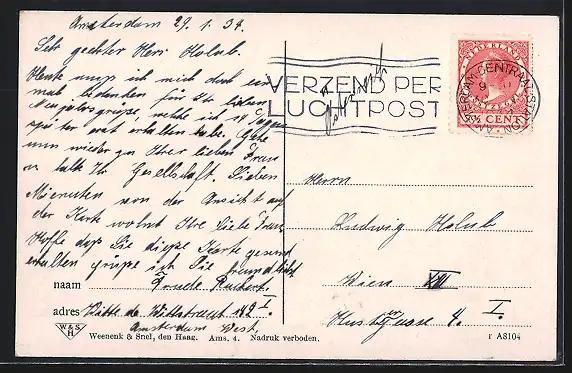 Amsterdam 29. 1. 34.
Sehr geehrter Herr Holub.
Heute muss ich mich doch ein
mal bedanken für Ihr lieben
Neujahrsgrüsse, welche ich 14 Tage
später erst erhalten habe. Gehe
nun wieder zu Ihrer lieben Frau
u. halte Ihr Gesellschaft. Sieben
Minuten von der Ansicht auf
der Karte wohnt Ihre liebe Frau
Hoffe dass Sie diese Karte gesund
erhalten grüsse ich Sie freundlichst
naam
adres Witte de Withstraat 142 I.
Amsterdam West.
W & S
H
Weenenk & Snel, den Haag. Ams. 4. Nadruk verboden.
VERZEND PER
LUCHTPOST
NEDERLAND
CENT
AMSTERDAM CENTRAAL STATION
Herrn
Ludwig Holub
Wien
Gasse 4. I.
r A8104